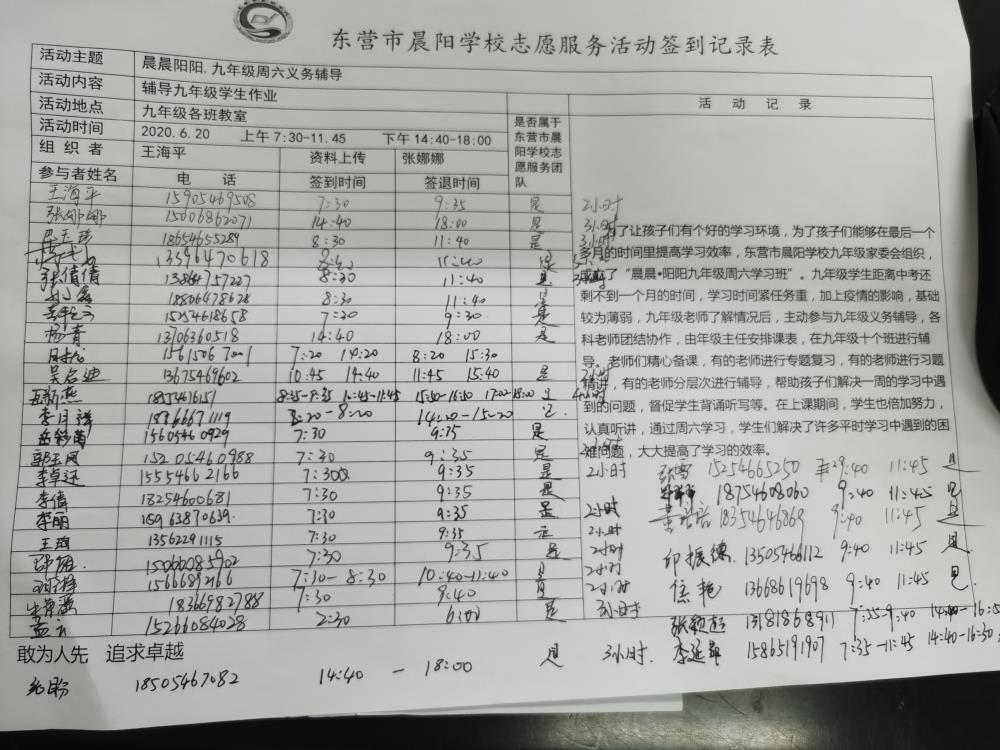 东营市晨阳学校志愿服务活动签到记录表
活动主题 晨晨阳阳.九年级周六义务辅导
活动内容 辅导九年级学生作业
活动地点 九年级各班教室
活动时间 2020.6.20 上午7:30-11.45 下午14:40-18:00
组织者 王海平 资料上传 张娜娜
参与者姓名 电 话 签到时间 签退时间
是否属于
东营市晨
阳学校志
愿服务团
队
活 动 记 录
王海平 15905469508 7:30 9:35 是 2小时
张娜娜 15006862071 14:40 18:00 是 3小时
18654655289 8:30 11:40 是 3小时
13396470618 11:40 是
张倩倩 13864757227 8:30 11:40 是
18806478628 8:30 11:40 是
15254618658 7:20 9:30 是
杨青 13706360518 14:40 18:00 是
7:20 14:20 8:20 15:30
吴名迪 13675469602 10:45 14:40 11:45 15:40 是
8:35-9:35 10:45-11:45 15:50-16:50 17:00-18:00
李月祥 18866671119 8:20-8:20 14:20-15:20
15605460929 7:30 9:35 是
郭玉凤 15205460988 7:30 9:35 是
李卓迅 15554662166 7:30 9:35 是 2小时
李倩 18254600681 7:30 9:35 是
李丽 15963870639. 7:30 9:35 是 2小时
13562291115 7:30 9:35 2小时
15066085902 7:30 9:35 是 2小时
7:30-8:30 10:40-11:40 2小时
18366982788 7:30 9:40 2小时
孟云 15266084028 2:30 6:00 是 3小时
为了让孩子们有个好的学习环境，为了孩子们能够在最后一个
多月的时间里提高学习效率，东营市晨阳学校九年级家委会组织，
成立了“晨晨•阳阳九年级周六学习班”。九年级学生距离中考还
剩不到一个月的时间，学习时间紧任务重，加上疫情的影响，基础
较为薄弱，九年级老师了解情况后，主动参与九年级义务辅导，各
科老师团结协作，由年级主任安排课表，在九年级十个班进行辅
导。老师们精心备课，有的老师进行专题复习，有的老师进行习题
精讲，有的老师分层次进行辅导，帮助孩子们解决一周的学习中遇
到的问题，督促学生背诵听写等。在上课期间，学生也倍加努力，
认真听讲，通过周六学习，学生们解决了许多平时学习中遇到的困
难问题，大大提高了学习的效率。
张雪 15254665250 9:40 11:45 是
18754608060 9:40 11:45 是
18354646869 9:40 11:45 是
邱振德 13505466112 9:40 11:45 是
徐艳 13668619698 9:40 11:45 是
张颖超 13181868911 7:35-9:40
李延华 15865191907 7:35-11:45 14:40-16:30
敢为人先 追求卓越
18505467082 14:40 - 18:00 是 3小时.